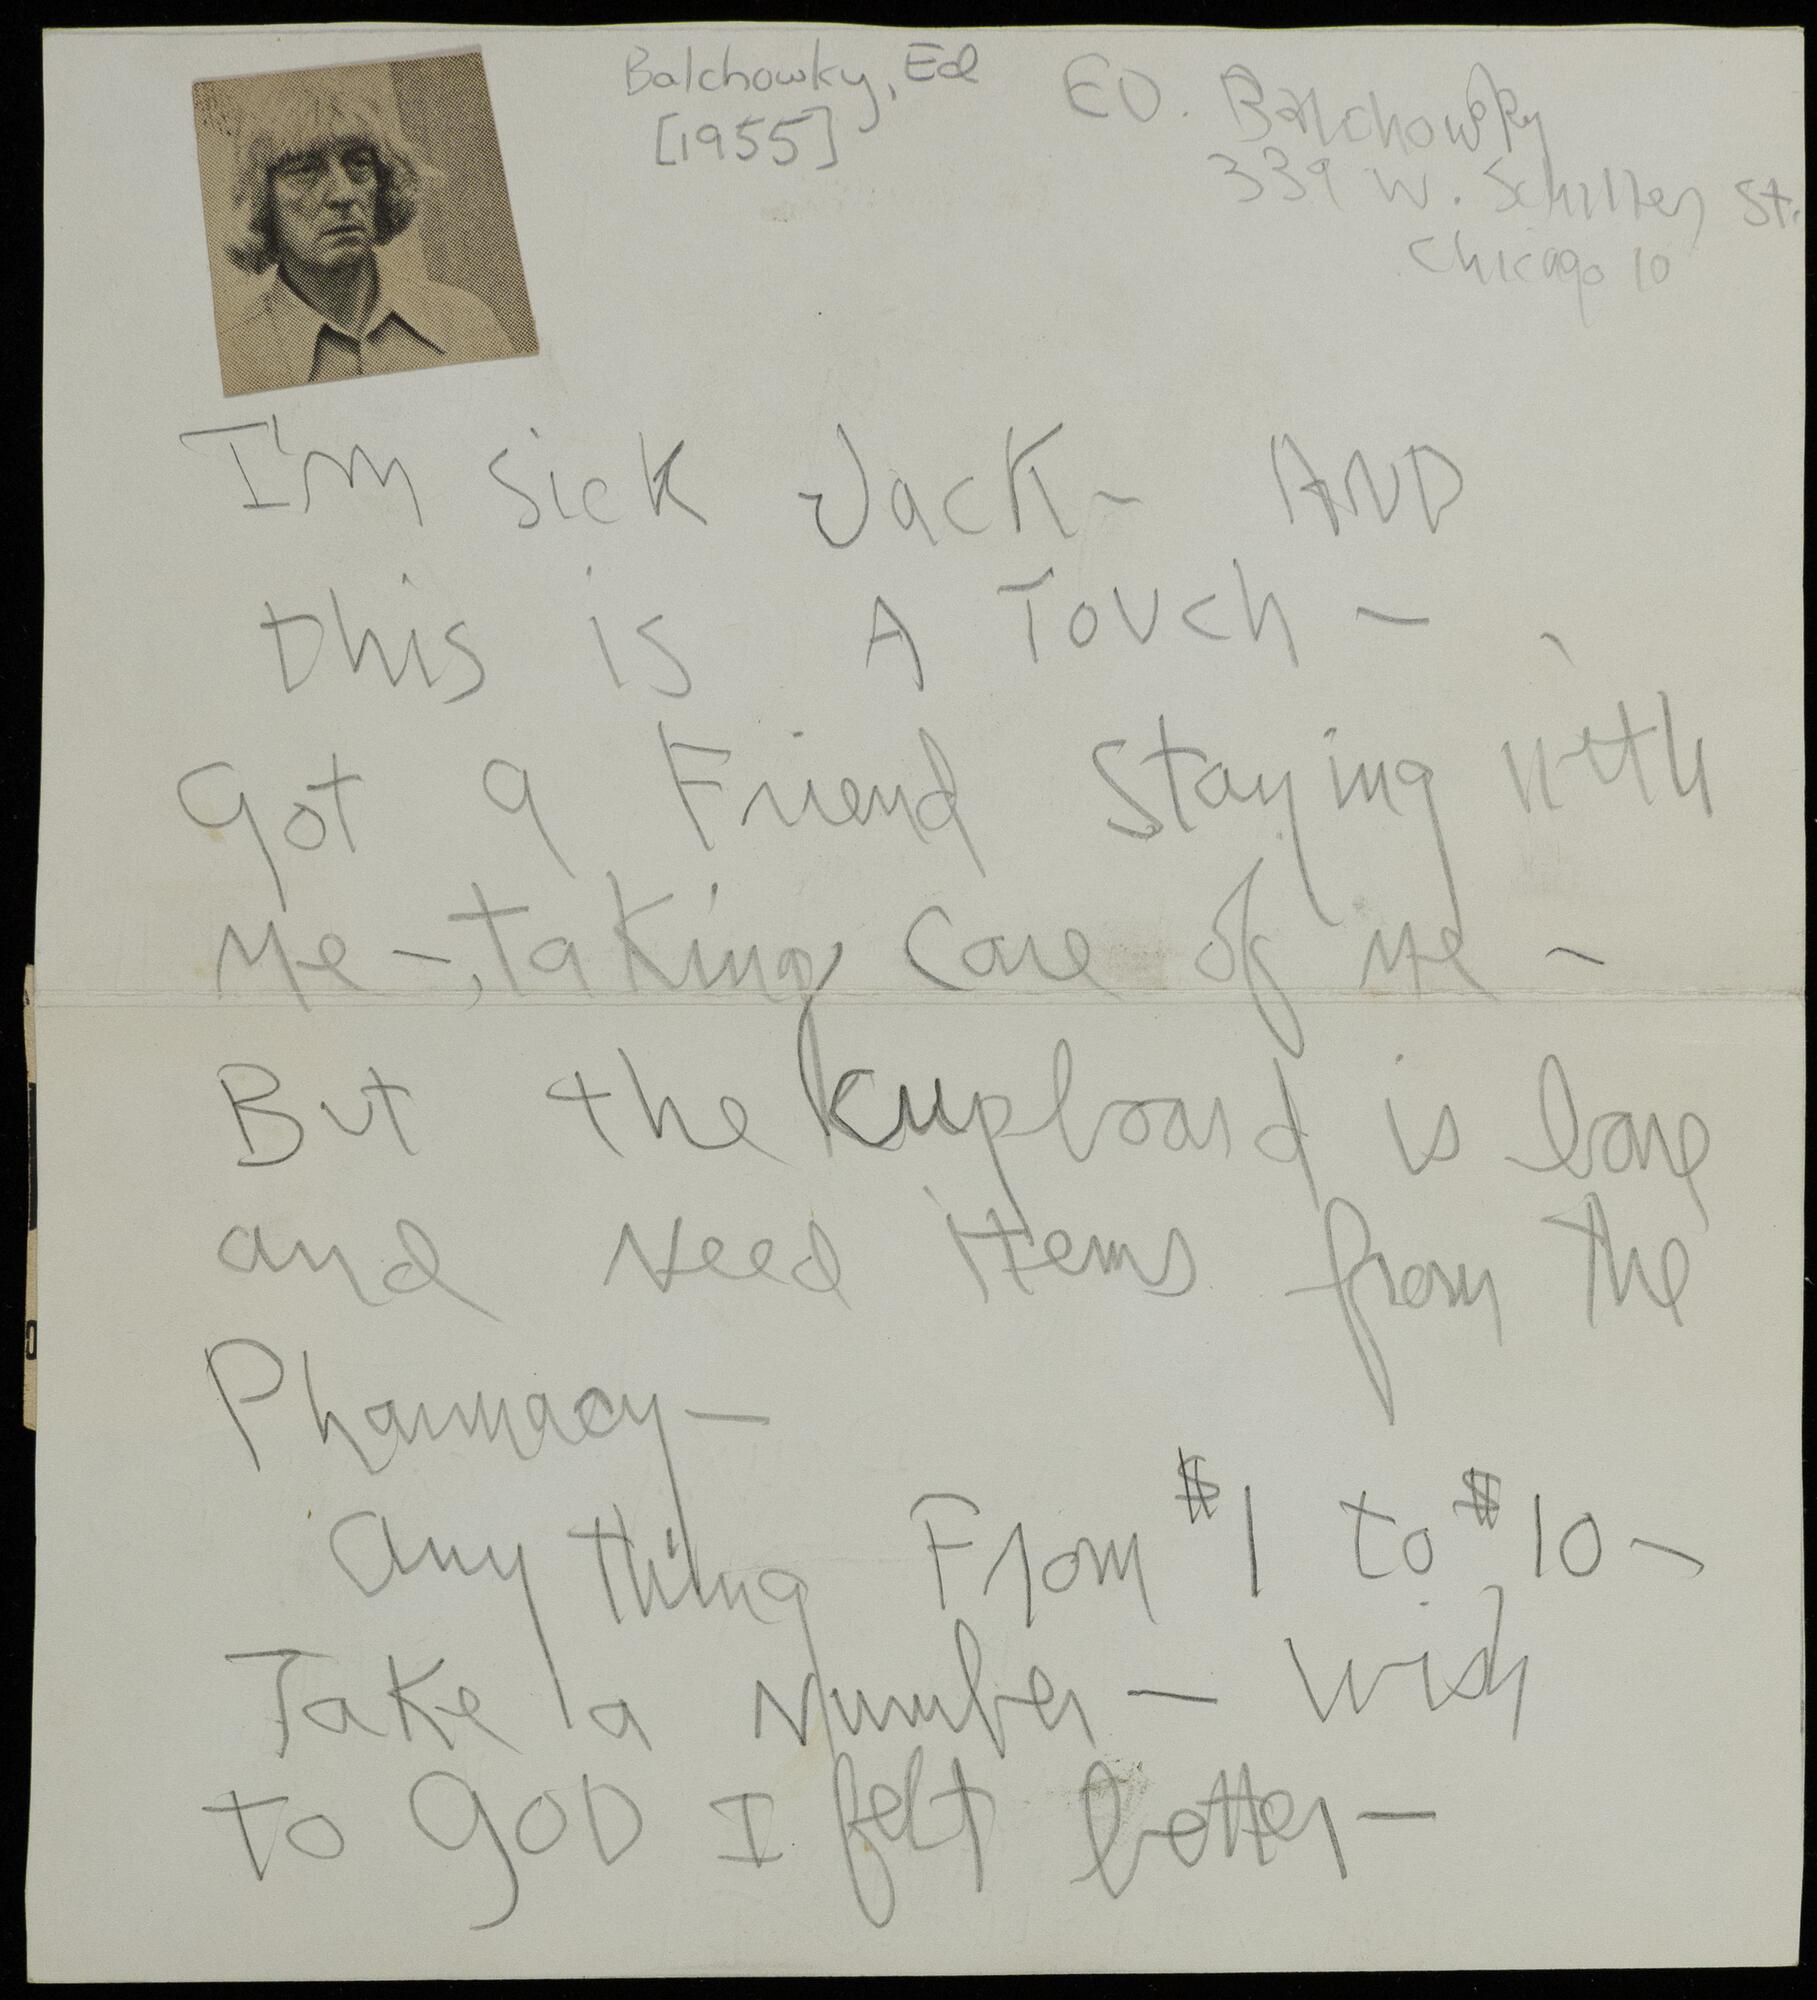 Balchowky, Ed
[1955]
ED. Balchowsky
339 W. Schiller St.
Chicago 10
I'm Sick Jack- AND
this is A Touch -
Got a Friend Staying with
Me -, taking Care of Me -
But the kupboard is bare
and Need items from the
Pharmacy -
Any thing From $1 to $10 -
Take a Number - Wish
to GOD I felt better -